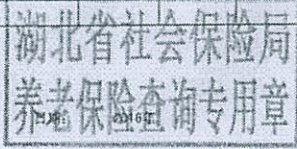 湖北省社会保险局
养老保险查询专用章
2016年